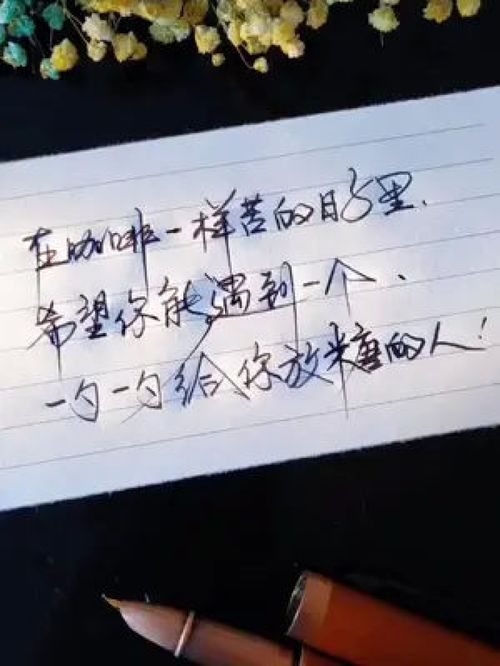 在咖啡一样苦的日子里.
希望你能遇到一个、
一勺一勺给你放糖的人!